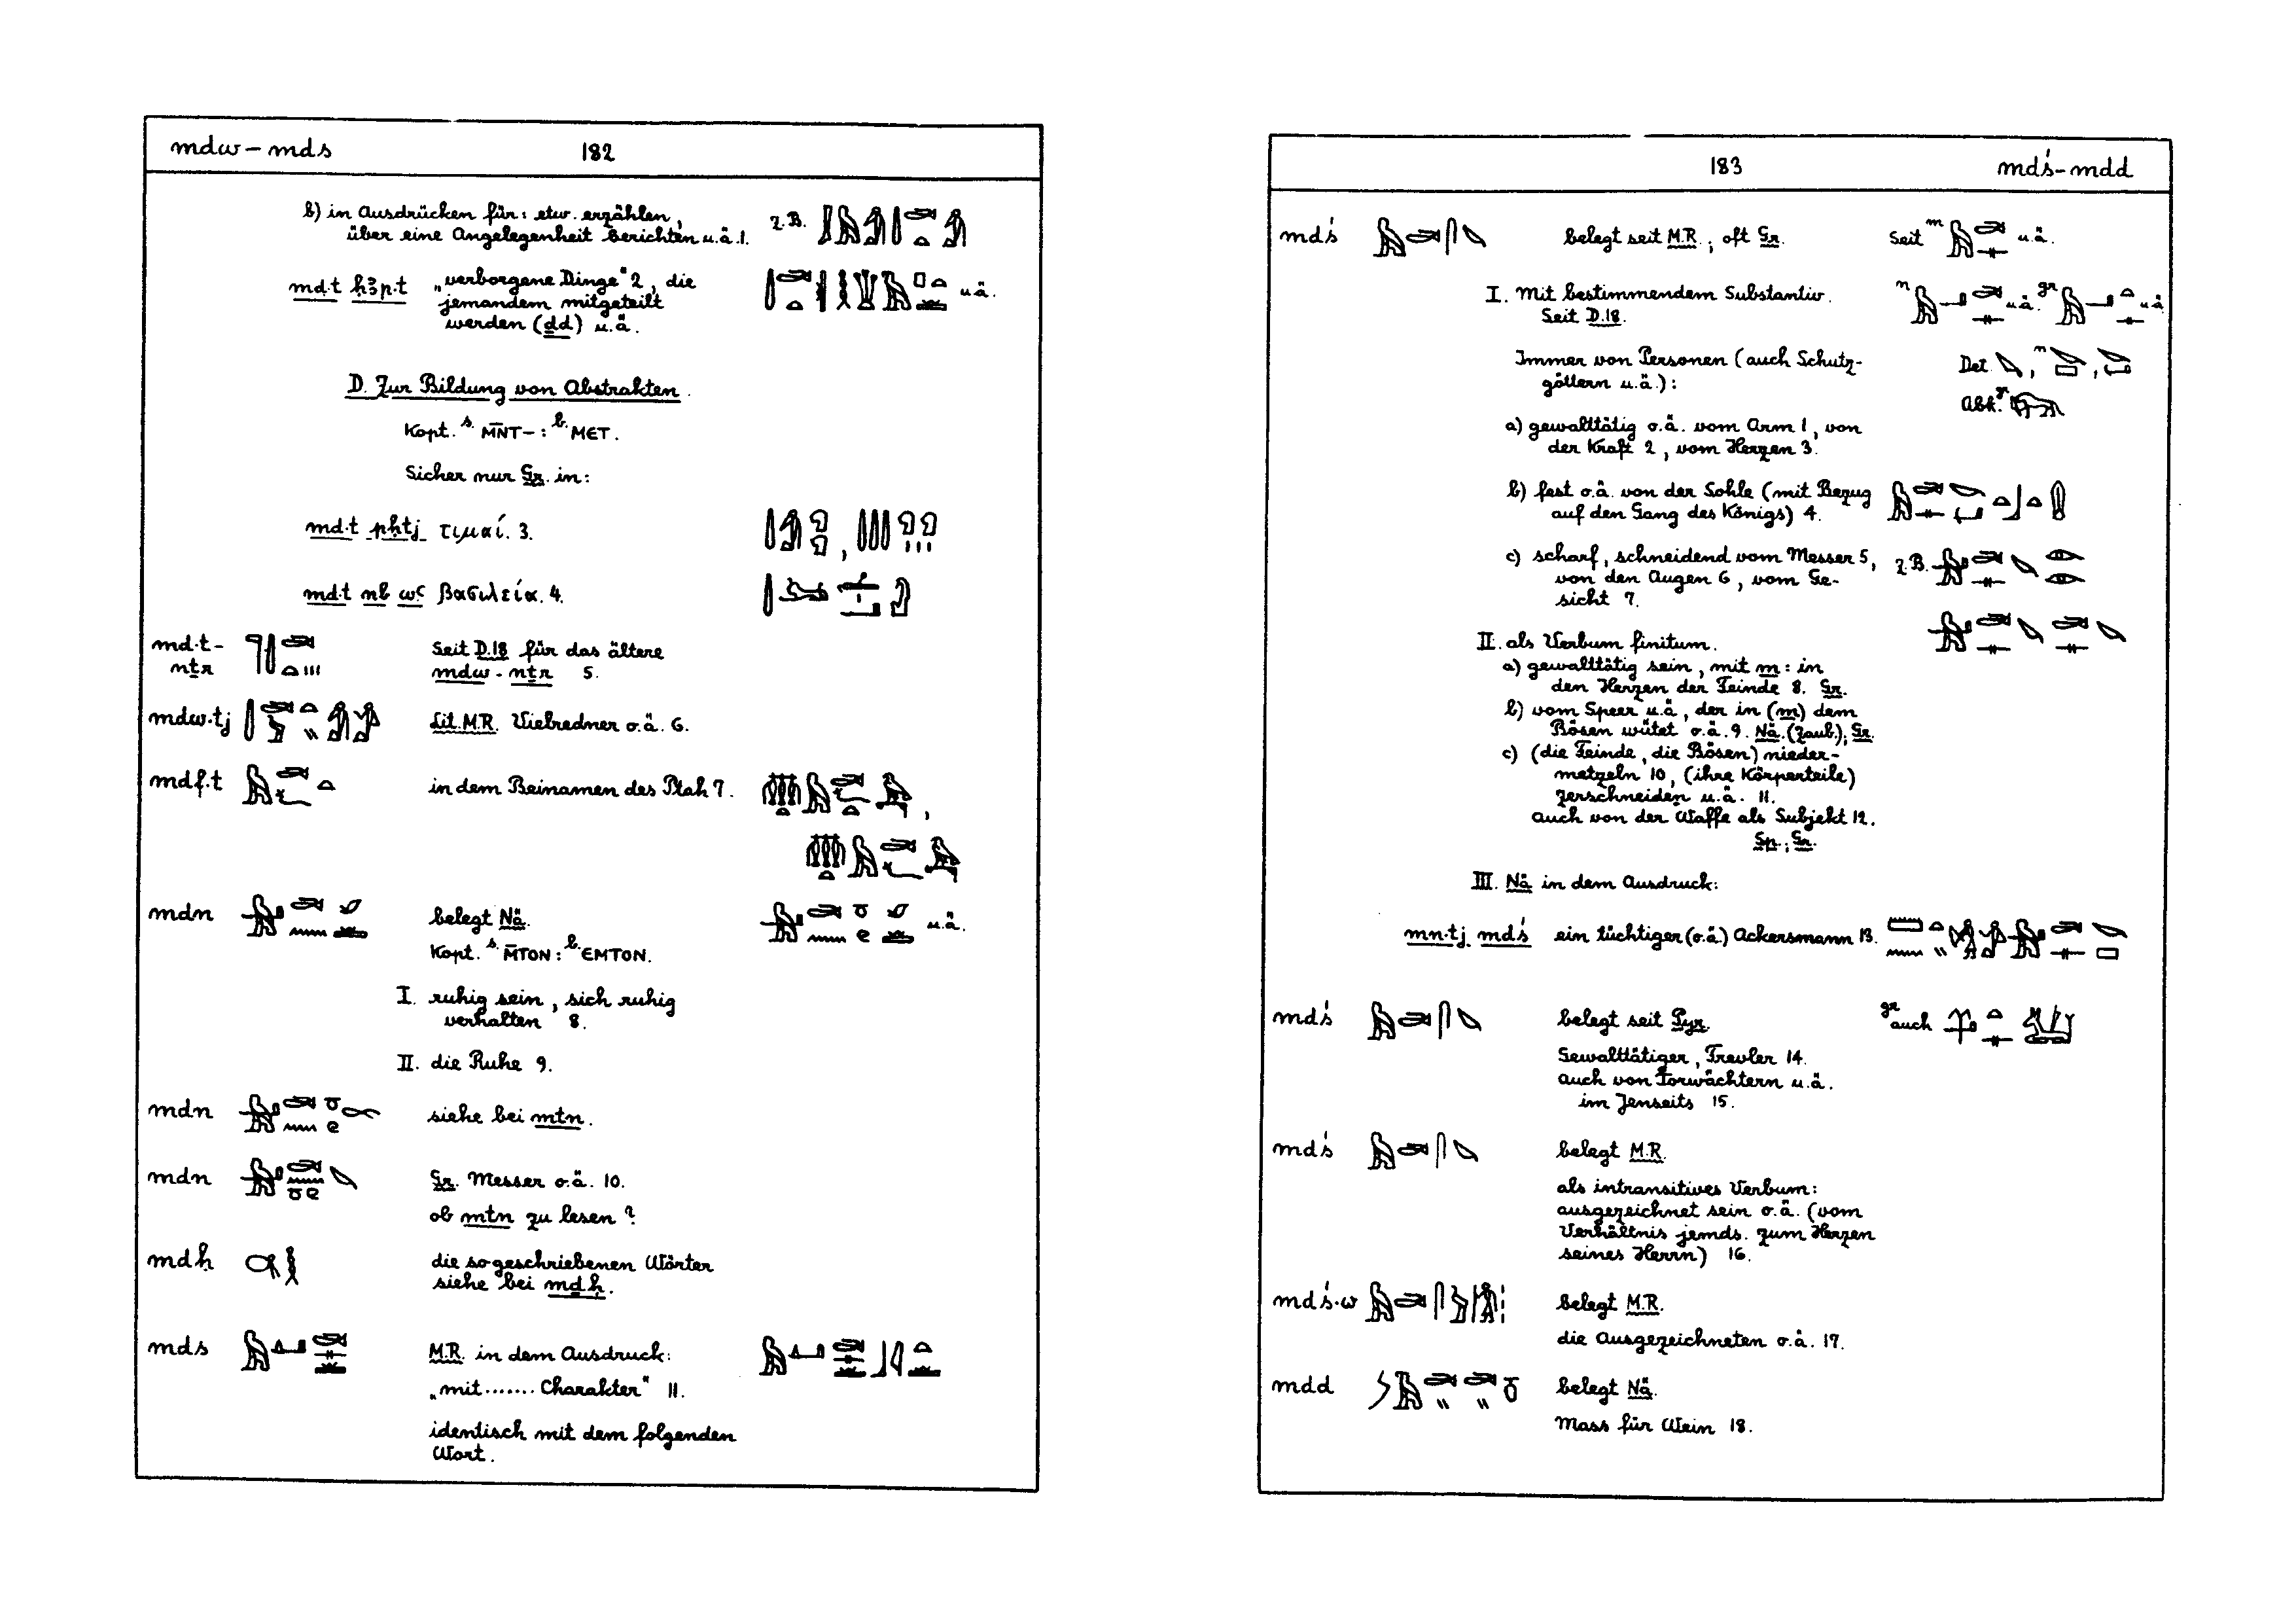 mdw – mds 182
b) in Ausdrücken für: etw. erzählen, z.B.
über eine Angelegenheit berichten u.ä. 1.
md·t ḥꜣp·t „verborgene Dinge“ 2, die u.ä.
jemandem mitgeteilt
werden (ḏd) u.ä.
D. Zur Bildung von Abstrakten.
Kopt. s. M̄NT- : b. MET.
Sicher nur Gr. in:
md·t pḥtj τιμαί. 3. ,
md·t nb wꜥ βασιλεία. 4.
md·t- Seit D.18 für das ältere
nṯr mdw - nṯr 5.
mdw·tj Lit. M.R. Vielredner o.ä. 6.
mdf·t in dem Beinamen des Ptah 7. ,
mdn belegt Nä. u.ä.
Kopt. s. M̄TON : b. EMTON.
I. ruhig sein, sich ruhig
verhalten 8.
II. die Ruhe 9.
mdn siehe bei mtn.
mdn Gr. Messer o.ä. 10.
ob mtn zu lesen?
mdḥ die so geschriebenen Wörter
siehe bei mḏḥ.
mds M.R. in dem Ausdruck:
„mit ....... Charakter“ 11.
identisch mit dem folgenden
Wort.
183 mdś – mdd
mdś belegt seit M.R., oft Gr. Seit m u.ä.
I. Mit bestimmendem Substantiv. n u.ä. gr u.ä.
Seit D.18.
Immer von Personen (auch Schutz- Det. , m , 
göttern u.ä.): Abk. gr
a) gewalttätig o.ä. vom Arm 1, von
der Kraft 2, vom Herzen 3.
b) fest o.ä. von der Sohle (mit Bezug
auf den Gang des Königs) 4.
c) scharf, schneidend vom Messer 5, z.B.
von den Augen 6, vom Ge-
sicht 7.
II. als Verbum finitum.
a) gewalttätig sein, mit m: in
den Herzen der Feinde 8. Gr.
b) vom Speer u.ä., der in (m) dem
Bösen wütet o.ä. 9. Nä. (Zaub.); Gr.
c) (die Feinde, die Bösen) nieder-
metzeln 10, (ihre Körperteile)
zerschneiden u.ä. 11.
auch von der Waffe als Subjekt 12.
Sp.; Gr.
III. Nä in dem Ausdruck:
mn·tj mdś ein tüchtiger (o.ä.) Ackersmann 13.
mdś belegt seit Pyr. gr auch
Gewalttätiger, Frevler 14.
auch von Torwächtern u.ä.
im Jenseits 15.
mdś belegt M.R.
als intransitives Verbum:
ausgezeichnet sein o.ä. (vom
Verhältnis jemds. zum Herzen
seines Herrn) 16.
mdś·w belegt M.R.
die Ausgezeichneten o.ä. 17.
mdd belegt Nä.
Mass für Wein 18.